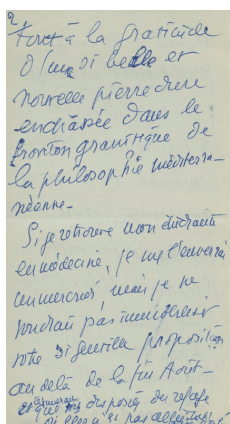 2
Tout à la gratitude
d'une si belle et
nouvelle pierre dure
enchâssée dans le
fronton granitique de
la philosophie méditerra-
néenne.
Si je retrouve mon étudiante
en médecine, je vous l'enverrai
un mercredi, mais je ne
voudrais pas immobiliser
votre si gentille proposition
au delà de la fin Août -
et que vous disposiez du refuge
si elle n'y pas